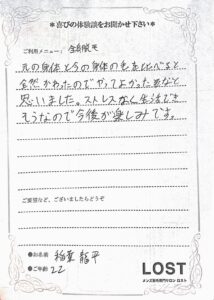 ＊喜びの体験談をお聞かせ下さい＊
ご利用メニュー： 全身脱毛
元の身体と今の身体の毛を比べると
全然かわったのでやってよかったなと
思いました。ストレスなく生活でき
そうなので今後が楽しみです。
ご要望など、ございましたらどうぞ
●お名前 稲葉 龍平
●ご年齢 22
LOST
メンズ脱毛専門サロン ロスト